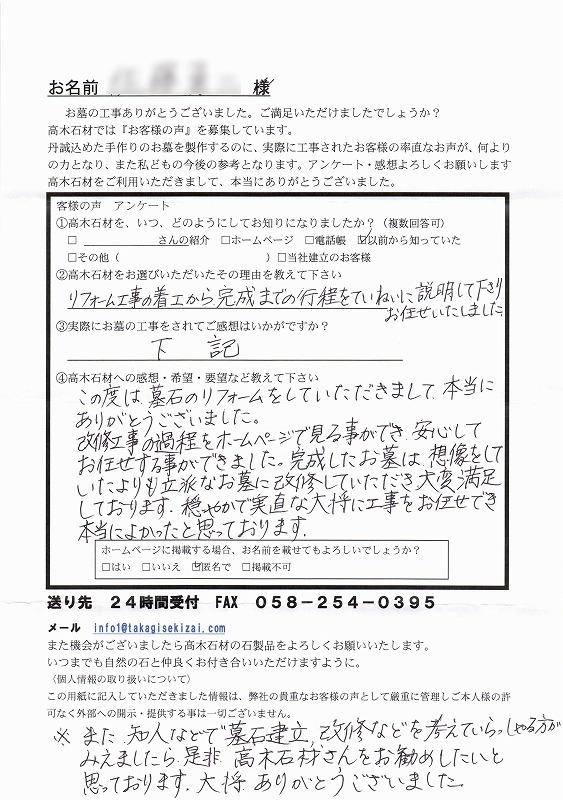 お名前 様
お墓の工事ありがとうございました。ご満足いただけましたでしょうか？
高木石材では『お客様の声』を募集しています。
丹誠込めた手作りのお墓を製作するのに、実際に工事されたお客様の率直なお声が、何より
の力となり、また私どもの今後の参考となります。アンケート・感想よろしくお願いします
高木石材をご利用いただきまして、本当にありがとうございました。
客様の声　アンケート
①高木石材を、いつ、どのようにしてお知りになりましたか？（複数回答可）
□ ＿＿＿＿＿＿さんの紹介 □ホームページ □電話帳 ☑以前から知っていた
□その他（　　　　　　　　　　）□当社建立のお客様
②高木石材をお選びいただいたその理由を教えて下さい
リフォーム工事の着工から完成までの行程をていねいに説明して下さり
お任せいたしました
③実際にお墓の工事をされてご感想はいかがですか？
下 記
④高木石材への感想・希望・要望など教えて下さい
この度は、墓石のリフォームをしていただきまして、本当に
ありがとうございました。
改修工事の過程をホームページで見る事ができ、安心して
お任せする事ができました。完成したお墓は、想像をして
いたよりも立派なお墓に改修していただき大変満足
しております。穏やかで実直な大将に工事をお任せでき
本当によかったと思っております。
ホームページに掲載する場合、お名前を載せてもよろしいでしょうか？
□はい □いいえ ☑匿名で □掲載不可
送り先　２４時間受付　FAX　０５８－２５４－０３９５
メール　info1@takagisekizai.com
また機会がございましたら高木石材の石製品をよろしくお願いいたします。
いつまでも自然の石と仲良くお付き合いいただけますように。
（個人情報の取り扱いについて）
この用紙に記入していただきました情報は、弊社の貴重なお客様の声として厳重に管理しご本人様の許
可なく外部への開示・提供する事は一切ございません。
※ また 知人などで墓石建立、改修などを考えていらっしゃる方が
みえましたら、是非、高木石材さんをお勧めしたいと
思っております。大将、ありがとうございました。